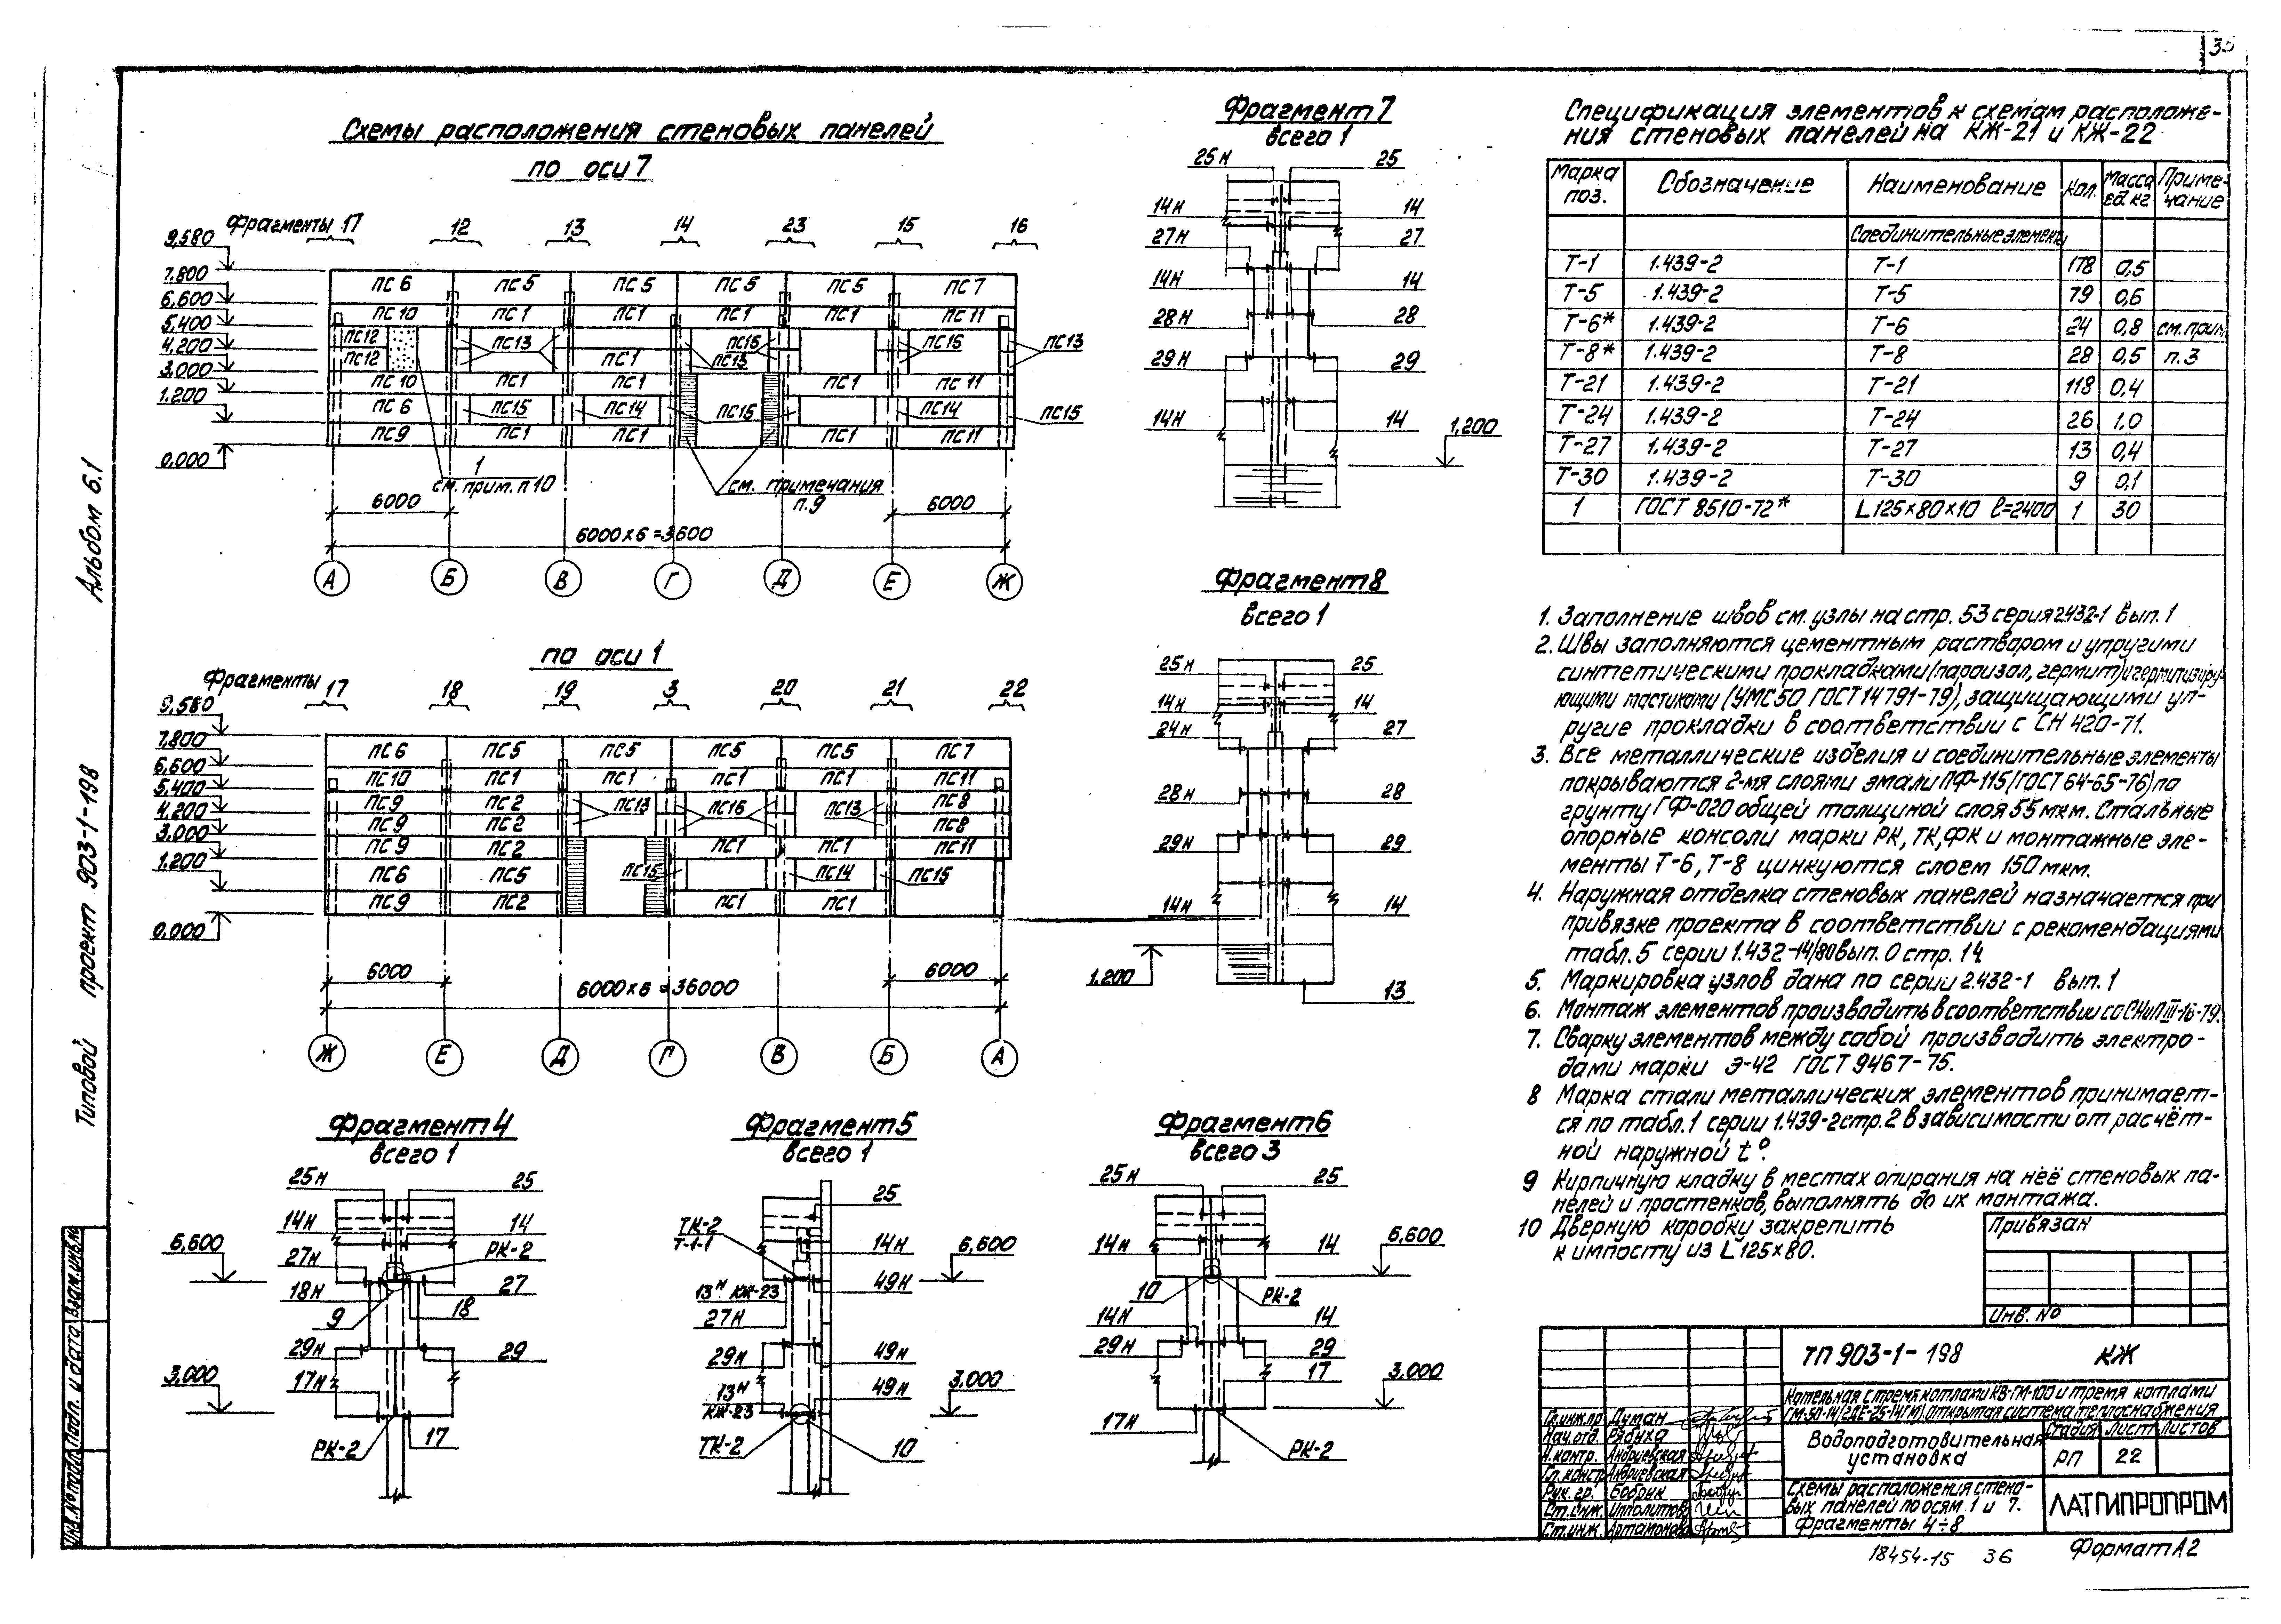 Схемы расположения стеновых панелей
по оси 7
Фрагменты 17 12 13 14 23 15 16
9,580
7.800
6,600
5,400
4,200
3,000
1.200
0,000
ПС 6 ПС 5 ПС 5 ПС 5 ПС 5 ПС 7
ПС 10 ПС1 ПС1 ПС1 ПС1 ПС 11
ПС12 ПС13 ПС16 ПС16 ПС13
ПС12 ПС1 ПС13
ПС 10 ПС1 ПС1 ПС1 ПС 11
ПС 6 ПС15 ПС14 ПС15 ПС14 ПС15
ПС9 ПС1 ПС1 ПС1 ПС11
1
см. прим. п 10
см. примечания
п.9
6000 6000
6000×6 =3600
А Б В Г Д Е Ж
по оси 1
Фрагменты 17 18 19 3 20 21 22
9,580
7.800
6.600
5,400
4,200
3,000
1.200
0,000
ПС 6 ПС5 ПС5 ПС5 ПС5 ПС7
ПС10 ПС1 ПС1 ПС1 ПС1 ПС11
ПС9 ПС2 ПС13 ПС16 ПС13 ПС8
ПС9 ПС2 ПС8
ПС9 ПС2 ПС1 ПС1 ПС11
ПС6 ПС5 ПС15 ПС14 ПС15
ПС9 ПС2 ПС1 ПС1
6000 6000
6000×6 =36000
Ж Е Д Г В Б А
Фрагмент 4
всего 1
25н 25
14н 14
6,600
РК-2
27н 27
18н 18
9
29н 29
3,000
17н 17
РК-2
Фрагмент 5
всего 1
25
ТК-2
Т-1-1
14н
6,600
49н
13н КЖ-23
27н
29н 49н
3.000
13н 49н
КЖ-23
ТК-2 10
Фрагмент 6
всего 3
25н 25
14н 14
6,600
10 РК-2
14н 14
29н 29
17
3.000
17н РК-2
Фрагмент 7
всего 1
25н 25
14н 14
27н 27
14н 14
28н 28
29н 29
14н 14
1,200
Фрагмент 8
всего 1
25н 25
14н 14
24н 27
28н 28
29н 29
14н 14
1.200
13
Спецификация элементов к схемам расположе-
ния стеновых панелей на КЖ-21 и КЖ-22
Марка поз. Обозначение Наименование Кол. Масса ед. кг Приме-чание
Соединительные элементы
Т-1 1.439-2 Т-1 178 0,5
Т-5 1.439-2 Т-5 79 0,6
Т-6* 1.439-2 Т-6 24 0,8 см. прим.
Т-8* 1.439-2 Т-8 28 0,5 п. 3
Т-21 1.439-2 Т-21 118 0,4
Т-24 1.439-2 Т-24 26 1,0
Т-27 1.439-2 Т-27 13 0,4
Т-30 1.439-2 Т-30 9 0,1
1 ГОСТ 8510-72* L 125×80×10 ℓ=2400 1 30
1. Заполнение швов см. узлы на стр. 53 серия 2.432-1 вып. 1
2. Швы заполняются цементным раствором и упругими
синтетическими прокладками (пароизол, гермит) и герметизиру-
ющими мастиками (УМС50 ГОСТ 14791-79), защищающими уп-
ругие прокладки в соответствии с СН 420-71.
3. Все металлические изделия и соединительные элементы
покрываются 2-мя слоями эмали ПФ-115 (ГОСТ 64-65-76) по
грунту ГФ-020 общей толщиной слоя 55 мкм. Стальные
опорные консоли марки РК, ТК, ФК и монтажные эле-
менты Т-6, Т-8 цинкуются слоем 150 мкм.
4. Наружная отделка стеновых панелей назначается при
привязке проекта в соответствии с рекомендациями
табл. 5 серии 1.432-14/80 вып. 0 стр. 14.
5. Маркировка узлов дана по серии 2.432-1 вып. 1
6. Монтаж элементов производить в соответствии со СНиП III-16-79.
7. Сварку элементов между собой производить электро-
дами марки Э-42 ГОСТ 9467-75.
8 Марка стали металлических элементов принимает-
ся по табл. 1 серии 1.439-2 стр. 2 в зависимости от расчёт-
ной наружной t°.
9 Кирпичную кладку в местах опирания на неё стеновых па-
нелей и простенков, выполнять до их монтажа.
10 Дверную коробку закрепить
к импосту из L 125×80.
Привязан
Инв. №
ТП 903-1-198 КЖ
Котельная с тремя котлами КВ-ГМ-100 и тремя котлами
ГМ-50-14/2 (ДЕ-25-14ГМ). Открытая система теплоснабжения
Водоподготовительная
установка
Стадия Лист Листов
РП 22
Схемы расположения стено-
вых панелей по осям 1 и 7.
Фрагменты 4÷8
ЛАТГИПРОПРОМ
Гл.инж.пр. Думан
Нач. отд. Рябуха
Н.контр. Андриевская
Гл. констр. Андриевская
Рук. гр. Бобрик
Ст.инж. Ипполитов
Ст.инж. Артамонова
18454-15 36
Формат А2
Альбом 6.1
Типовой проект 903-1-198
Инв. № подл. Подп. и дата Взам. инв. №